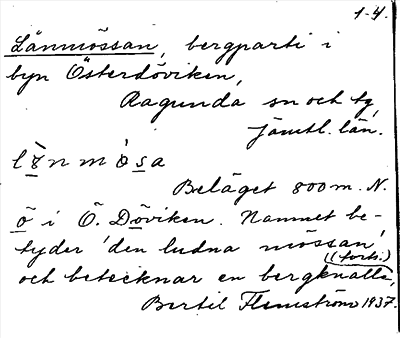 1-4.
Länmössan, bergparti i
byn Österdöviken,
Ragunda sn och tg,
Jämtl. län.
Beläget 800 m. N.
ö i Ö. Döviken. Namnet be-
tyder 'den ludna mössan',
((forts.)
och betecknar en bergknalle,
Bertil Flemström 1937.